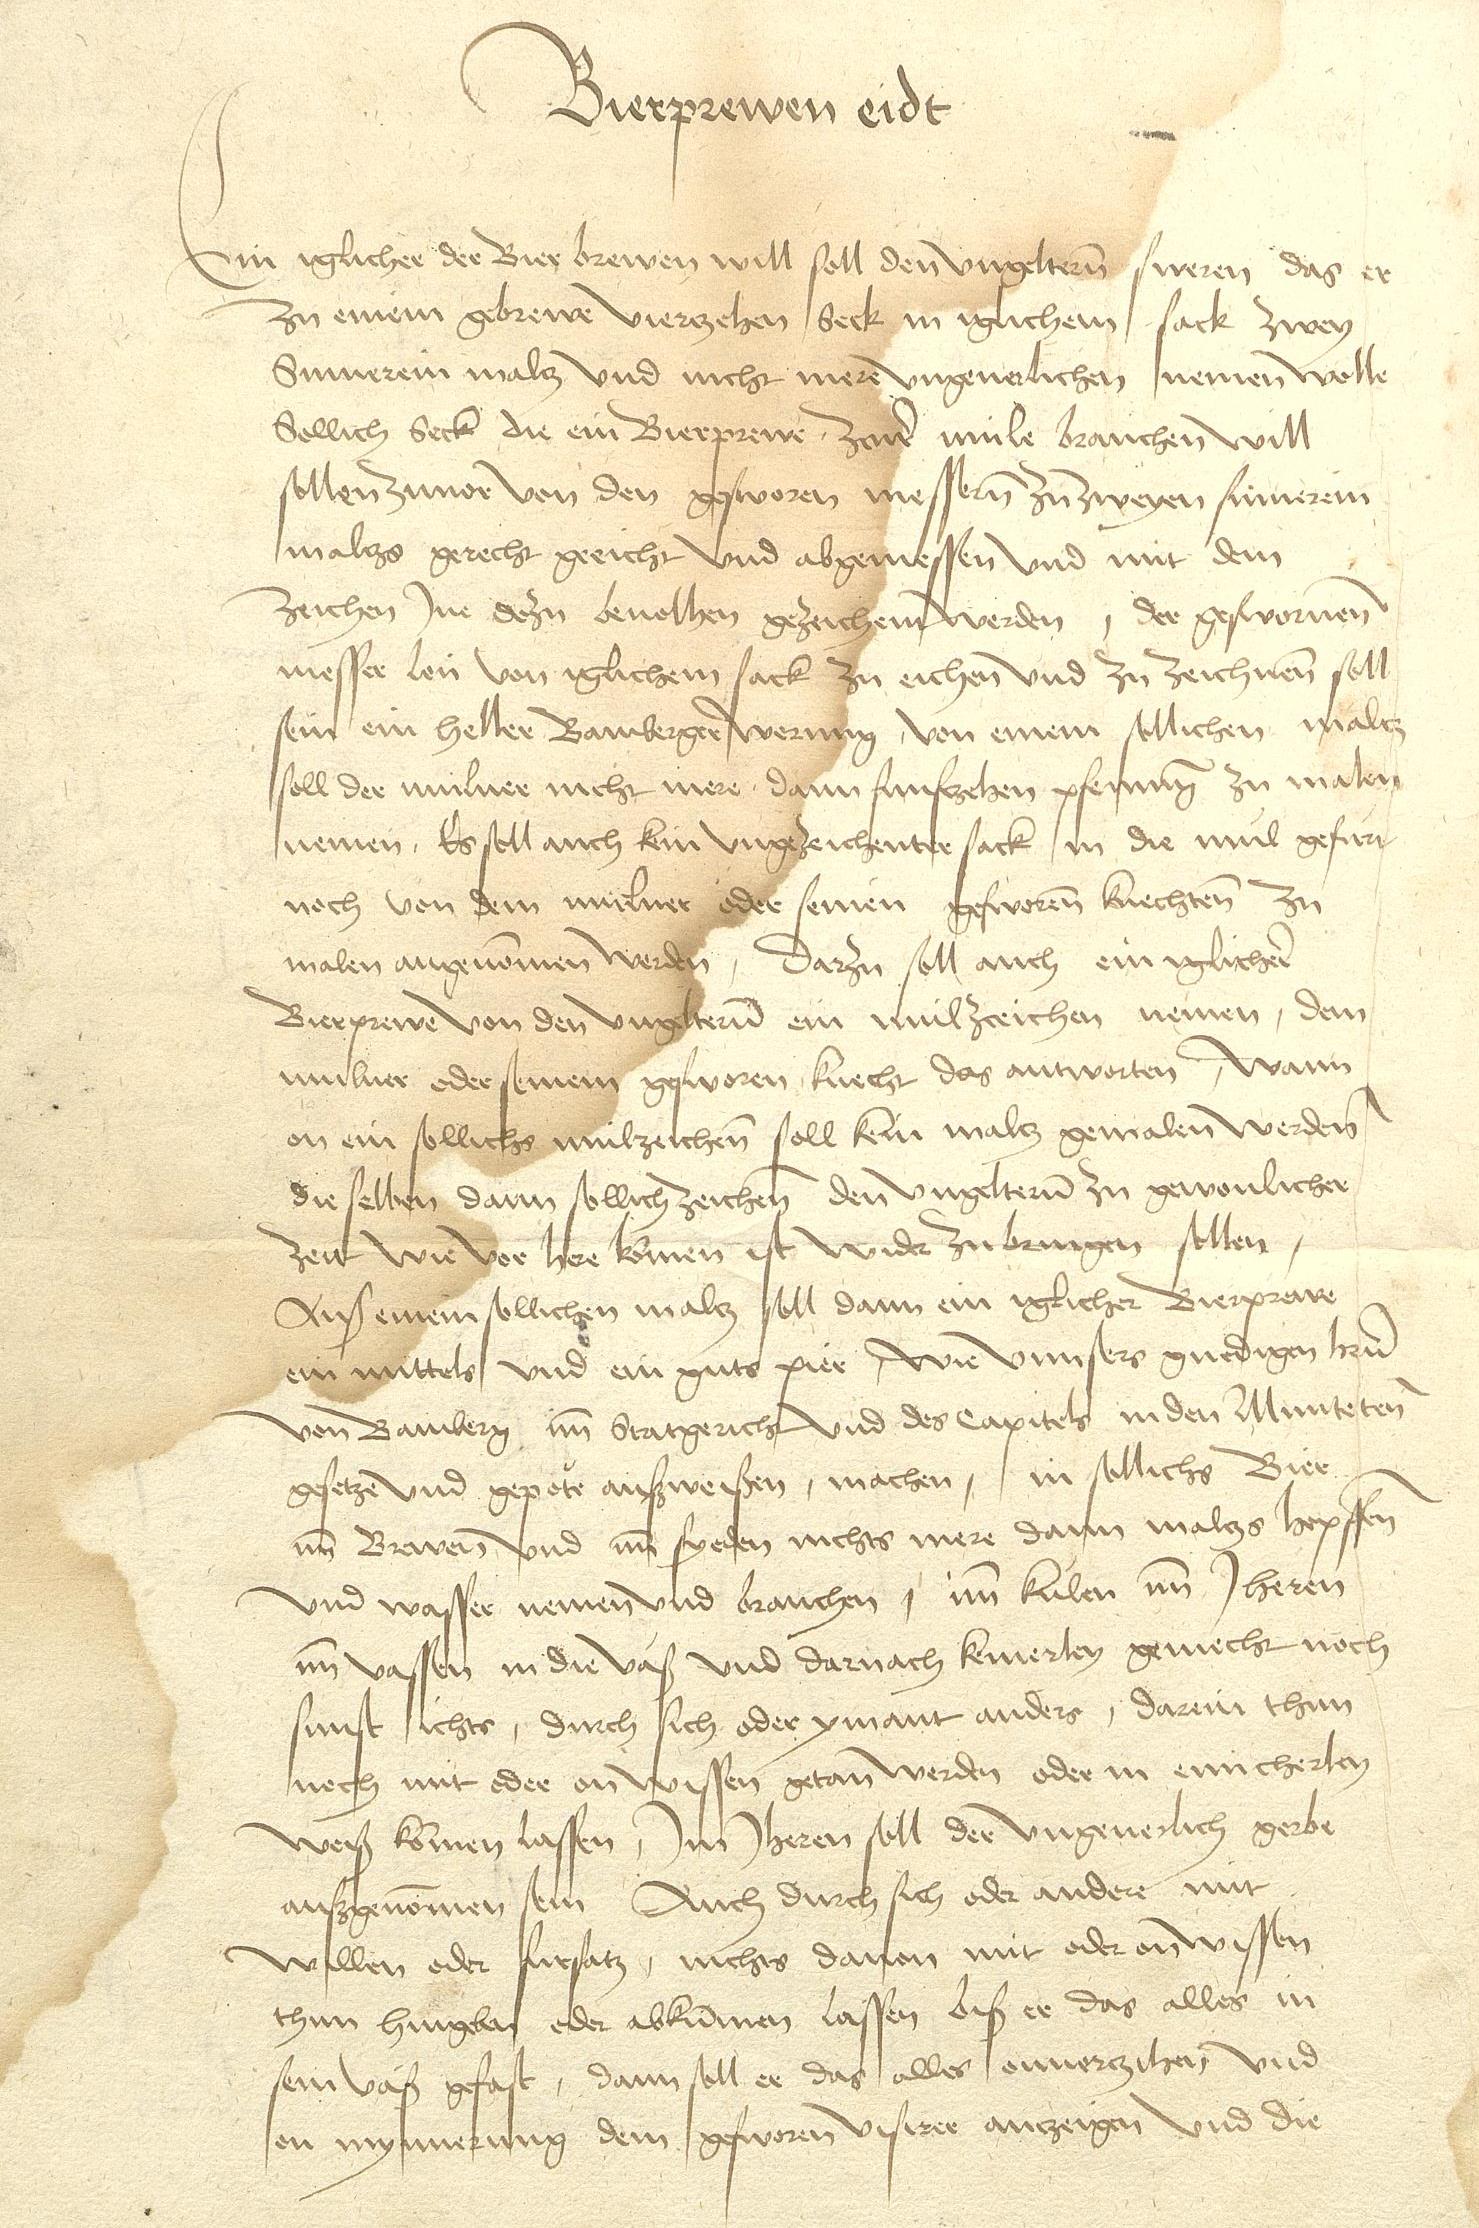 Bierprewen eidt
Ein iglicher der Bier brewen will soll den ungeltern sweren das er
zu einem gebrewe vierzehen Seck in iglichem sack zwey
Summerein maltz vnd nicht mere vngeuerlichen nemen wolle
Sollich Seck die ein Bierprewe zcur mule brauchen will
sollen zuuor von den gesworen messern zu zweyen sumerein
maltzs gerecht geeicht vnd abgemessen vnd mit dem
zeichen Ine dorzu beuolhen gezeichent werden, der geswornen
messer lon von iglichem sack zu eichen vnd zu zeichnen soll
sein ein heller Bamberger werung, von einem sollichen maltz
soll der mulner nicht mere dann funfzehen pfennig zu malen
nemen, Es soll auch kein vngezeichenter sack in die mul gefurt
noch von dem mulner oder seinen gesworen knechten zu
malen angenomen werden, Darzu soll auch ein iglicher
Bierprewe von den vngeltern ein mulzceichen nemen, dem
mulner oder seinem gesworen knecht das antworten, Wann
on ein sollichs mulzeichen soll kein maltz gemalen werden
die selben dann sollich zeichen den vngeltern zu gewonlicher
zeit wie vor here komen ist wider zu bringen sollen,
Auß einem sollichen maltz soll dann ein iglicher Bierprewe
ein mittels vnd ein guts pier, wie vnnsers gnedigen hern
von Bamberg im Statgericht vnd des Capitels in den Munteten
gesetze vnd gepote außweißen, machen, in sollichs Bier
im Brewen vnd im syeden nichts mere dann maltzs hopffen
vnd wasser nemen vnd brauchen, im kulen im Iheren
im vassen in die vaß vnd darnach keinerley gemecht noch
sunst ichts, durch sich oder ymant anders, darein thun
noch mit oder on wissen getan werden oder in einicherley
weiß komen lassen, Im Iheren soll der vngeuerlich gerbe
außgenomen sein Auch durch sich oder andere mit
willen oder fursatz, nichts dauon mit oder on wissen
thun hingeben oder abkumen lassen biß er das alles in
sein vaß gefast, dann soll er das alles onuerzihen vnd
on mynnerung dem gesworen visirer anczeigen vnd die